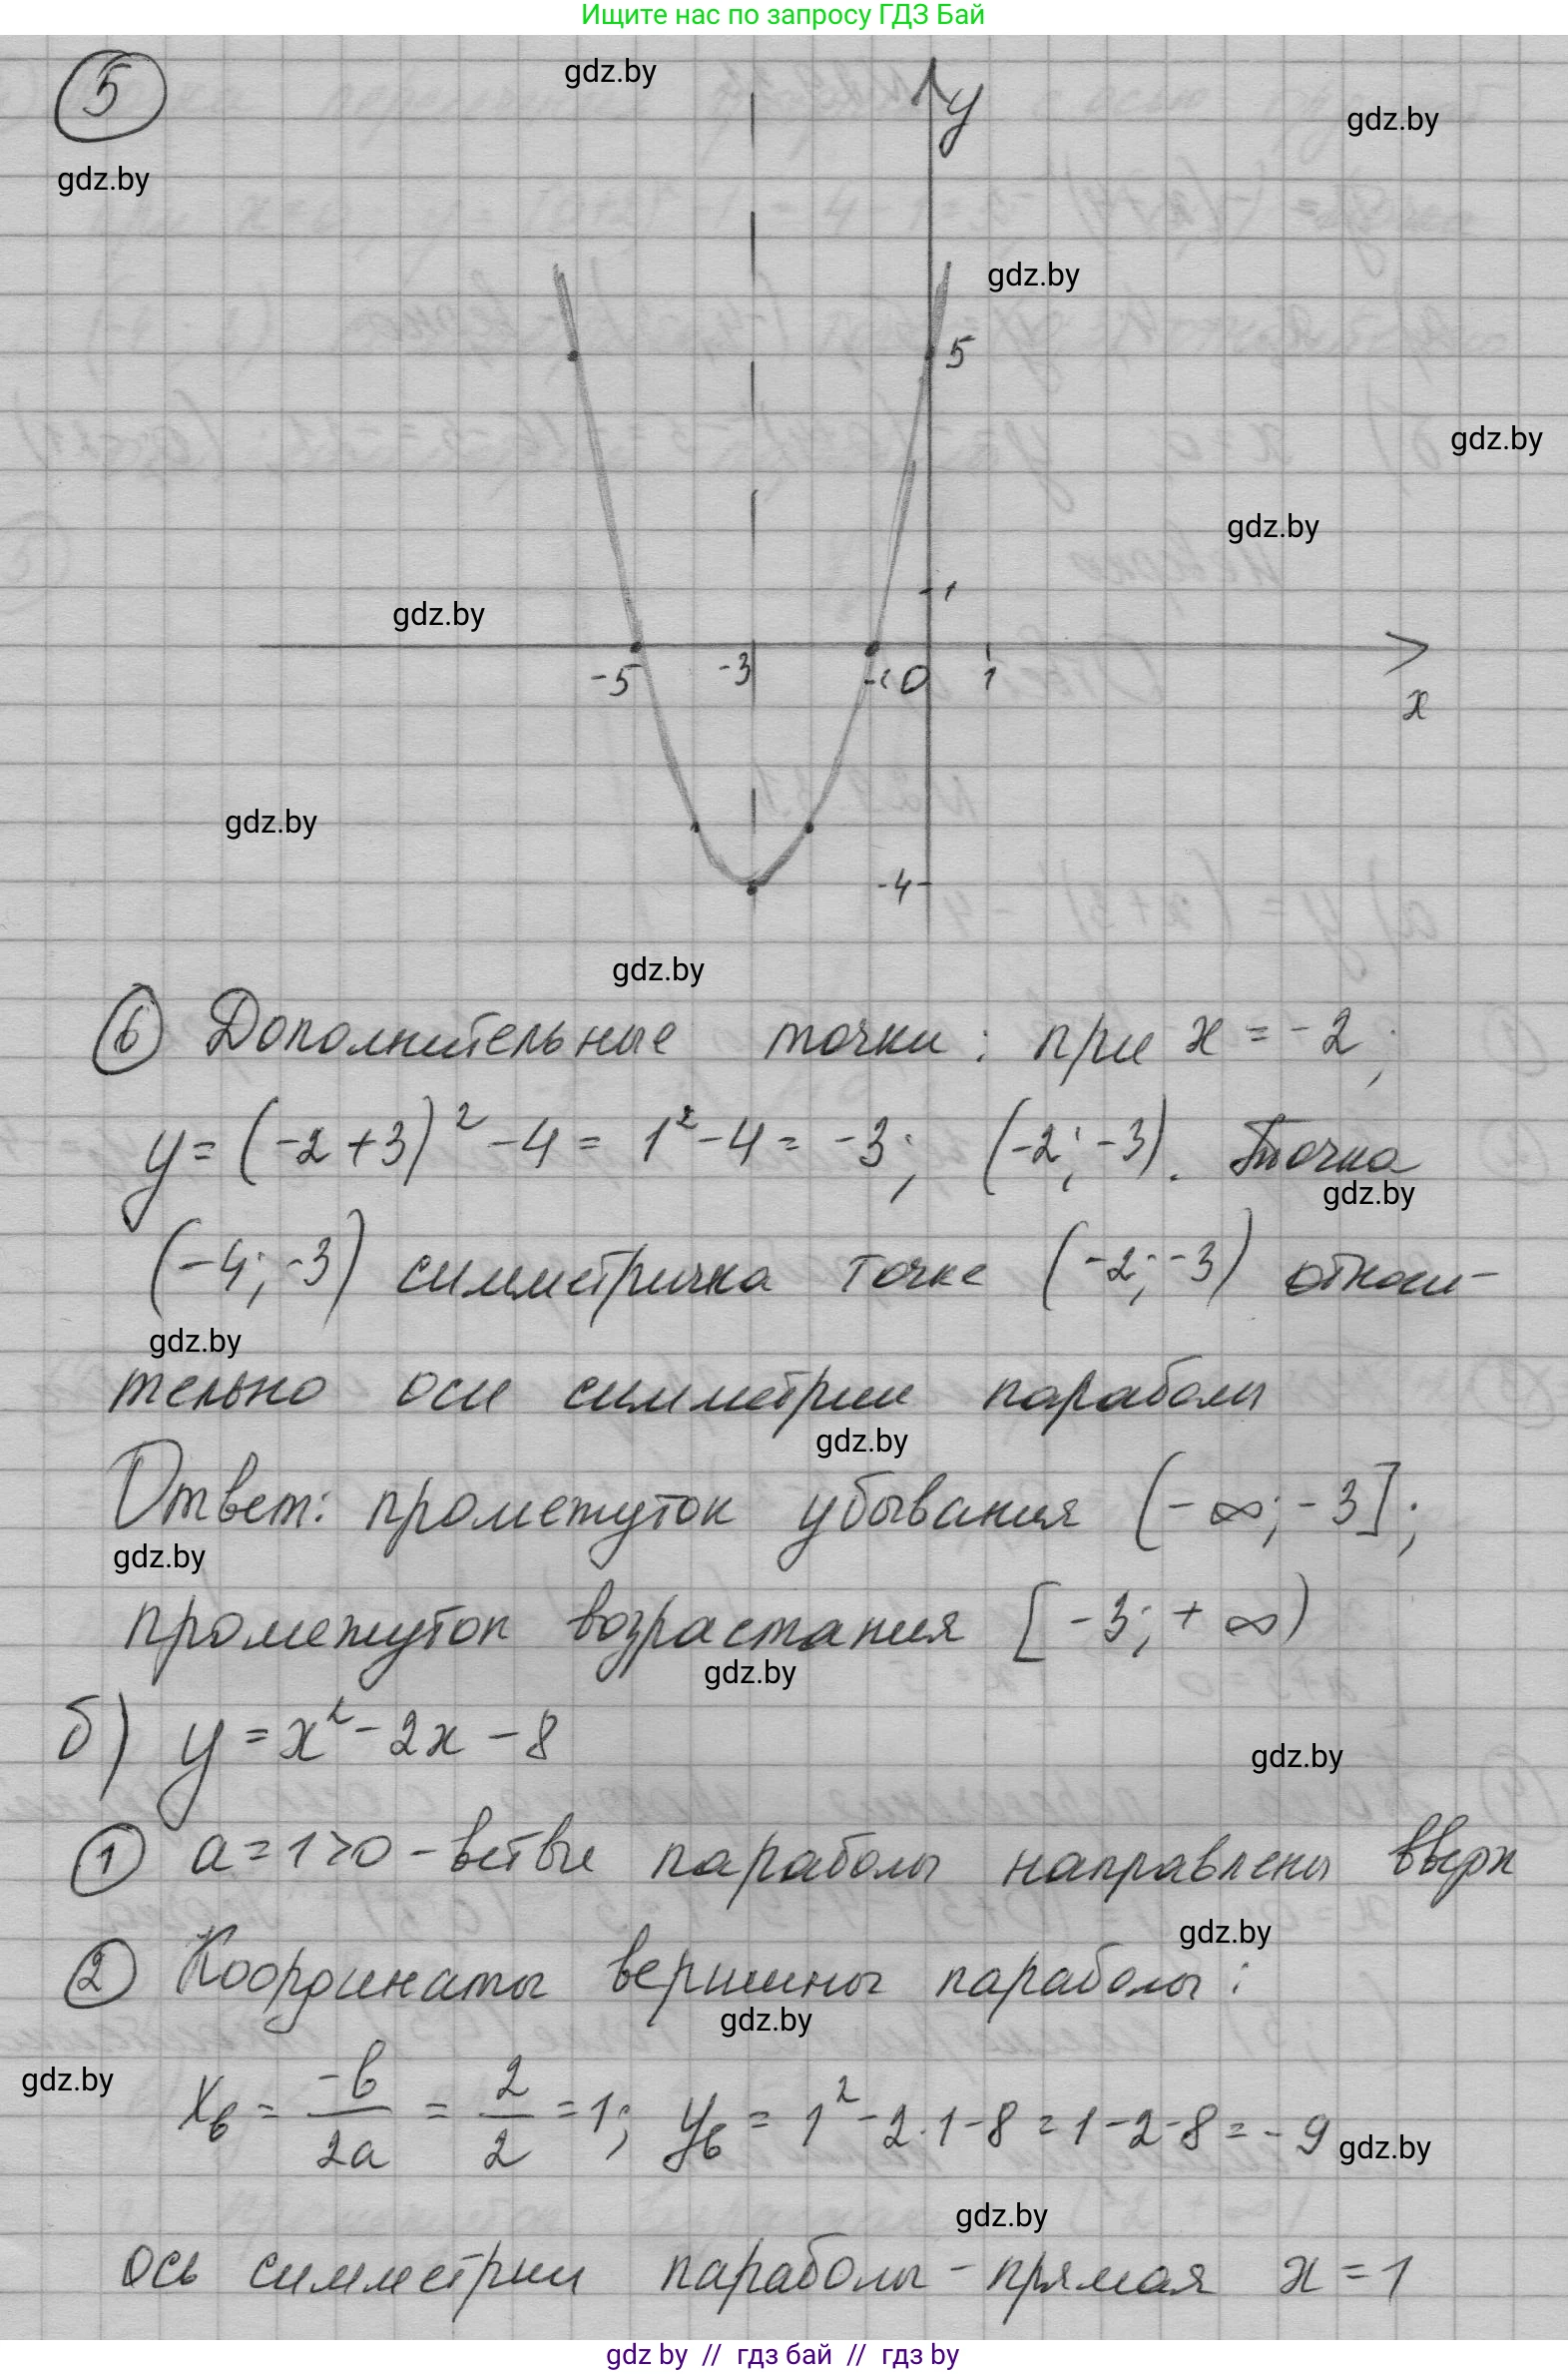 Ищите нас по запросу ГДЗ Бай
5
gdz.by
gdz.by
gdz.by
y
gdz.by
5
gdz.by
gdz.by
gdz.by
1
-5 -3 -1 0 1
x
gdz.by
-4
gdz.by
6 Дополнительные точки: при x = -2;
y = (-2+3)² - 4 = 1² - 4 = -3; (-2; -3). Точка
gdz.by
(-4; -3) симметрична точке (-2; -3) относи-
gdz.by
тельно оси симметрии параболы
gdz.by
Ответ: промежуток убывания (-∞; -3];
gdz.by
промежуток возрастания [-3; +∞)
gdz.by
б) y = x² - 2x - 8
gdz.by
1 a = 1 > 0 - ветви параболы направлены вверх
gdz.by
2 Координаты вершины параболы:
gdz.by
gdz.by
xв = -b/2a = 2/2 = 1; yв = 1² - 2·1 - 8 = 1 - 2 - 8 = -9
gdz.by
gdz.by
ось симметрии параболы - прямая x = 1
gdz by // гдз бай // гдз by